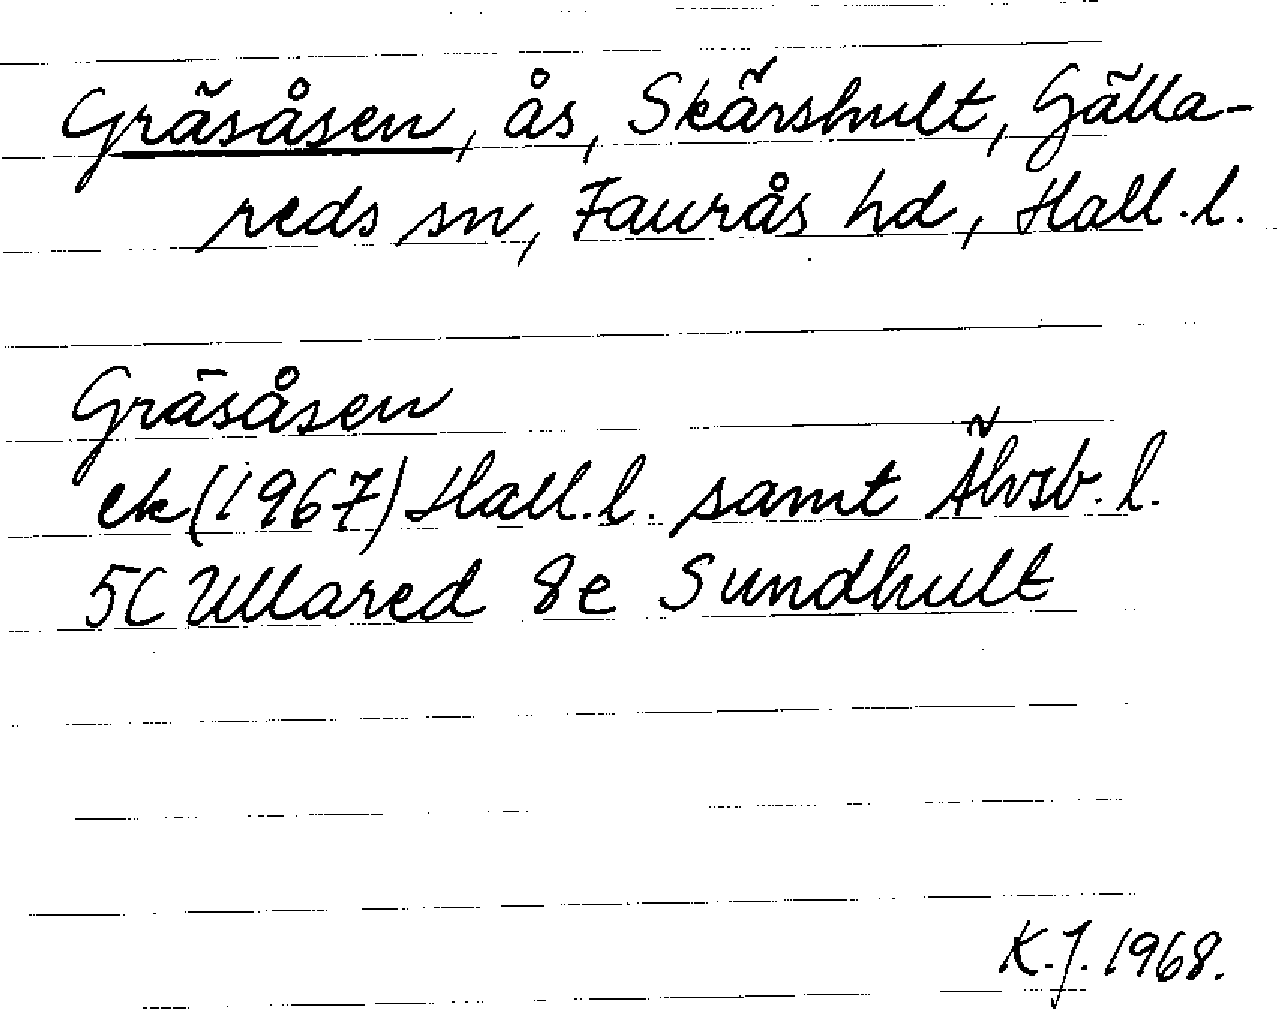 Gräsåsen, ås, Skärshult, Gälla-
reds sn, Faurås hd, Hall.l.
Gräsåsen
ek (1967) Hall.l. samt Älvsb.l.
5C Ullared 8e Sundhult
K.J. 1968.